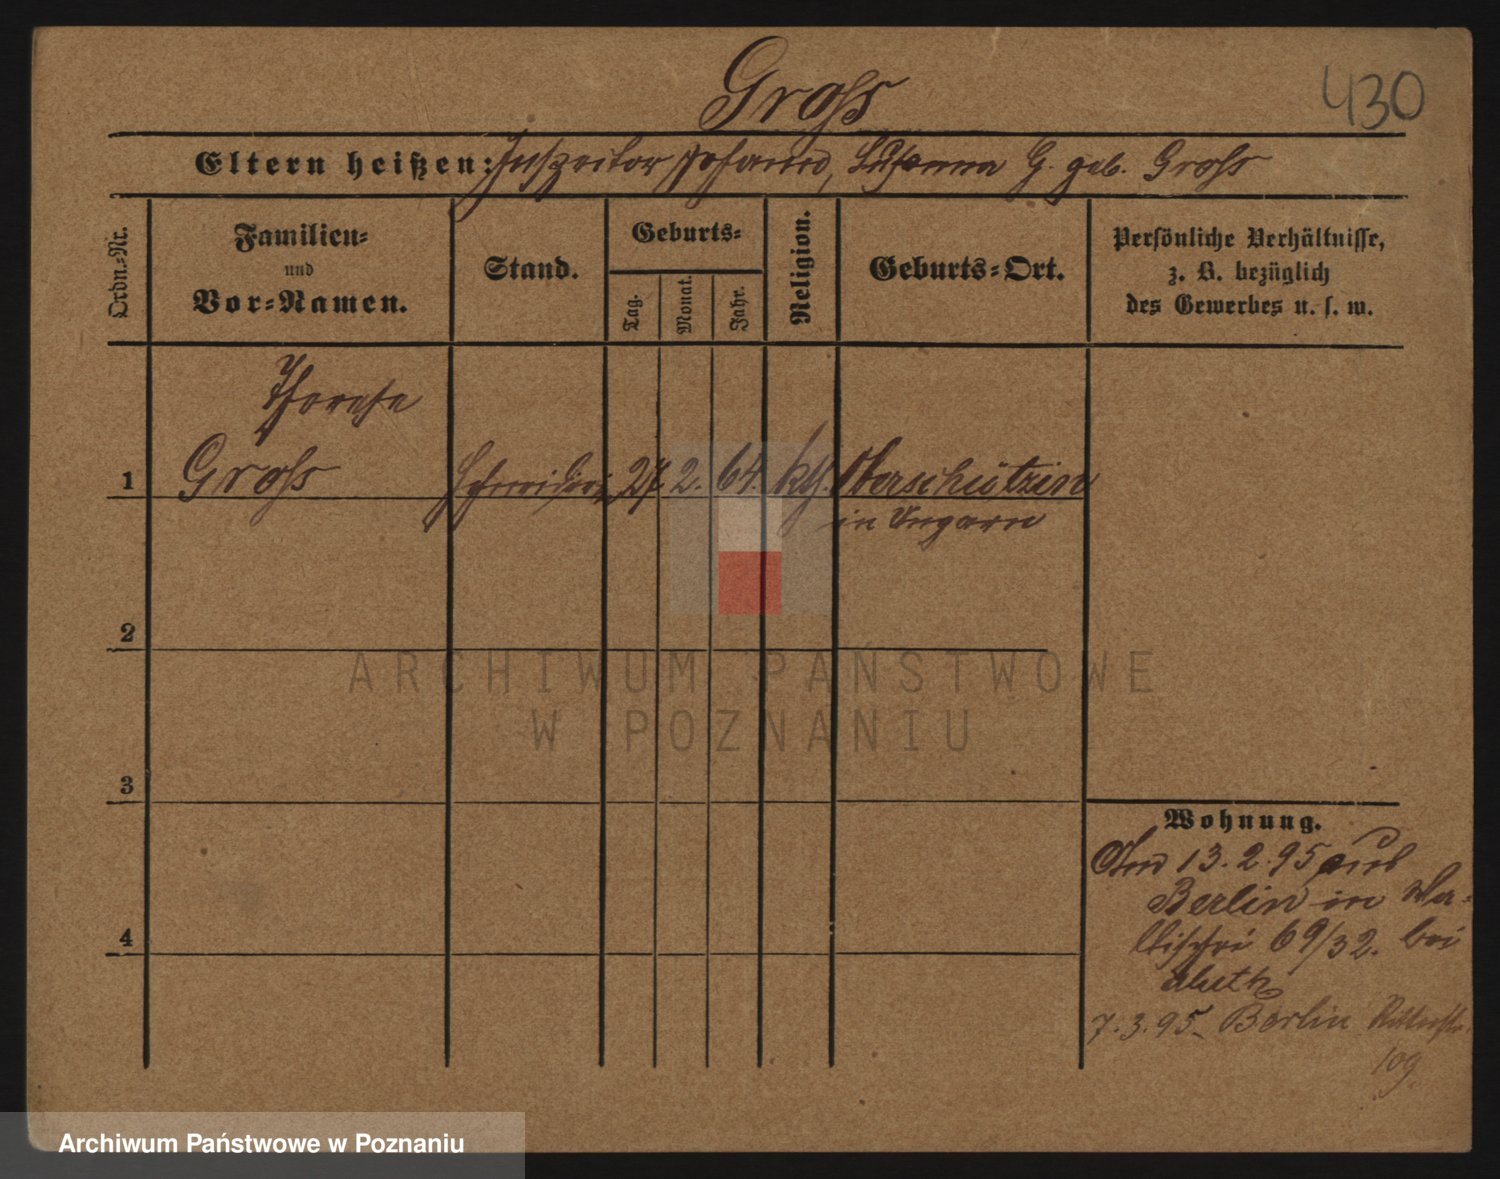 Gross
430
Eltern heißen: Inspector Johann, Susanna G. geb. Gross
Ordn.-Nr.
Familien-
und
Vor-Namen.
Stand.
Geburts-
Tag.
Monat.
Jahr.
Religion.
Geburts-Ort.
Persönliche Verhältnisse,
z. B. bezüglich
des Gewerbes u. s. w.
Therese
1 Gross 27 2. 64. kth. Oberschützen
in Ungarn
2
3
4
ARCHIWUM PAŃSTWOWE
W POZNANIU
Wohnung.
13.2.95 aus
Berlin in Wa-
lischei 69/32. bei
7.3.95 Berlin Ritterstr.
109.
Archiwum Państwowe w Poznaniu